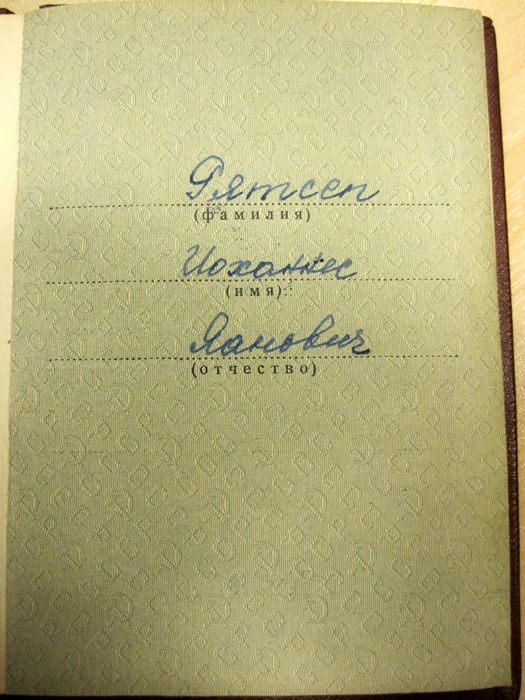 Рятсеп
(фамилия)
Иоханнес
(имя)
Яанович
(отчество)